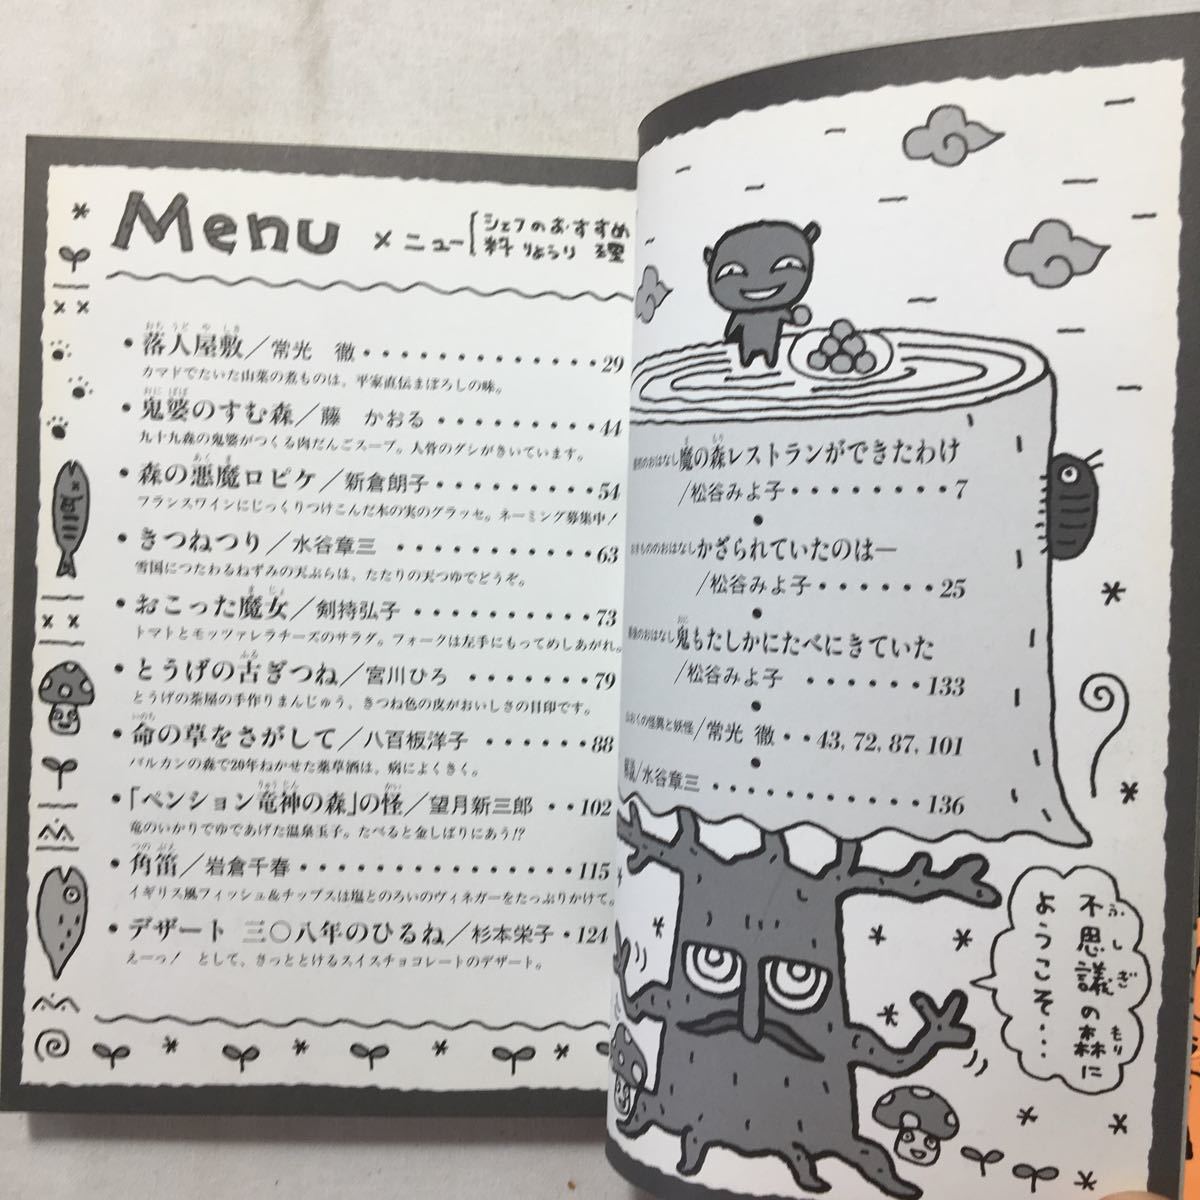 Menu メニュー シェフのおすすめ
料りょうり理
おちうどやしき
・落人屋敷／常光 徹・・・・・・・・・・・・・29
カマドでたいた山菜の煮ものは、平家直伝まぼろしの味。
おにばば
・鬼婆のすむ森／藤 かおる・・・・・・・・・44
九十九森の鬼婆がつくる肉だんごスープ。人骨のダシがきいています。
あくま
・森の悪魔ロピケ／新倉朗子・・・・・・・・・54
フランスワインにじっくりつけこんだ木の実のグラッセ。ネーミング募集中！
・きつねつり／水谷章三・・・・・・・・・・・63
雪国につたわるねずみの天ぷらは、たたりの天つゆでどうぞ。
まじょ
・おこった魔女／剣持弘子・・・・・・・・・・73
トマトとモッツァレラチーズのサラダ。フォークは左手にもってめしあがれ。
ふる
・とうげの古ぎつね／宮川ひろ・・・・・・・79
とうげの茶屋の手作りまんじゅう、きつね色の皮がおいしさの目印です。
いのち
・命の草をさがして／八百板洋子・・・・・・88
バルカンの森で20年ねかせた薬草酒は、病によくきく。
りゅうじん かい
・「ペンション竜神の森」の怪／望月新三郎・・102
竜のいかりでゆであげた温泉玉子。たべると金しばりにあう!?
つのぶえ
・角笛／岩倉千春・・・・・・・・・・・・・・115
イギリス風フィッシュ＆チップスは塩とのろいのヴィネガーをたっぷりかけて。
・デザート 三〇八年のひるね／杉本栄子・124
えーっ！ として、さっととけるスイスチョコレートのデザート。
ま もり
最初のおはなし魔の森レストランができたわけ
/松谷みよ子・・・・・・・・7
おきもののおはなしかざられていたのは―
/松谷みよ子・・・・・・25
おに
最後のおはなし鬼もたしかにたべにきていた
/松谷みよ子・・・・・・133
山おくの怪異と妖怪/常光 徹・・43, 72, 87, 101
解説/水谷章三・・・・・・・・・・・136
ふしぎ もり
不思議の森に
ようこそ・・・